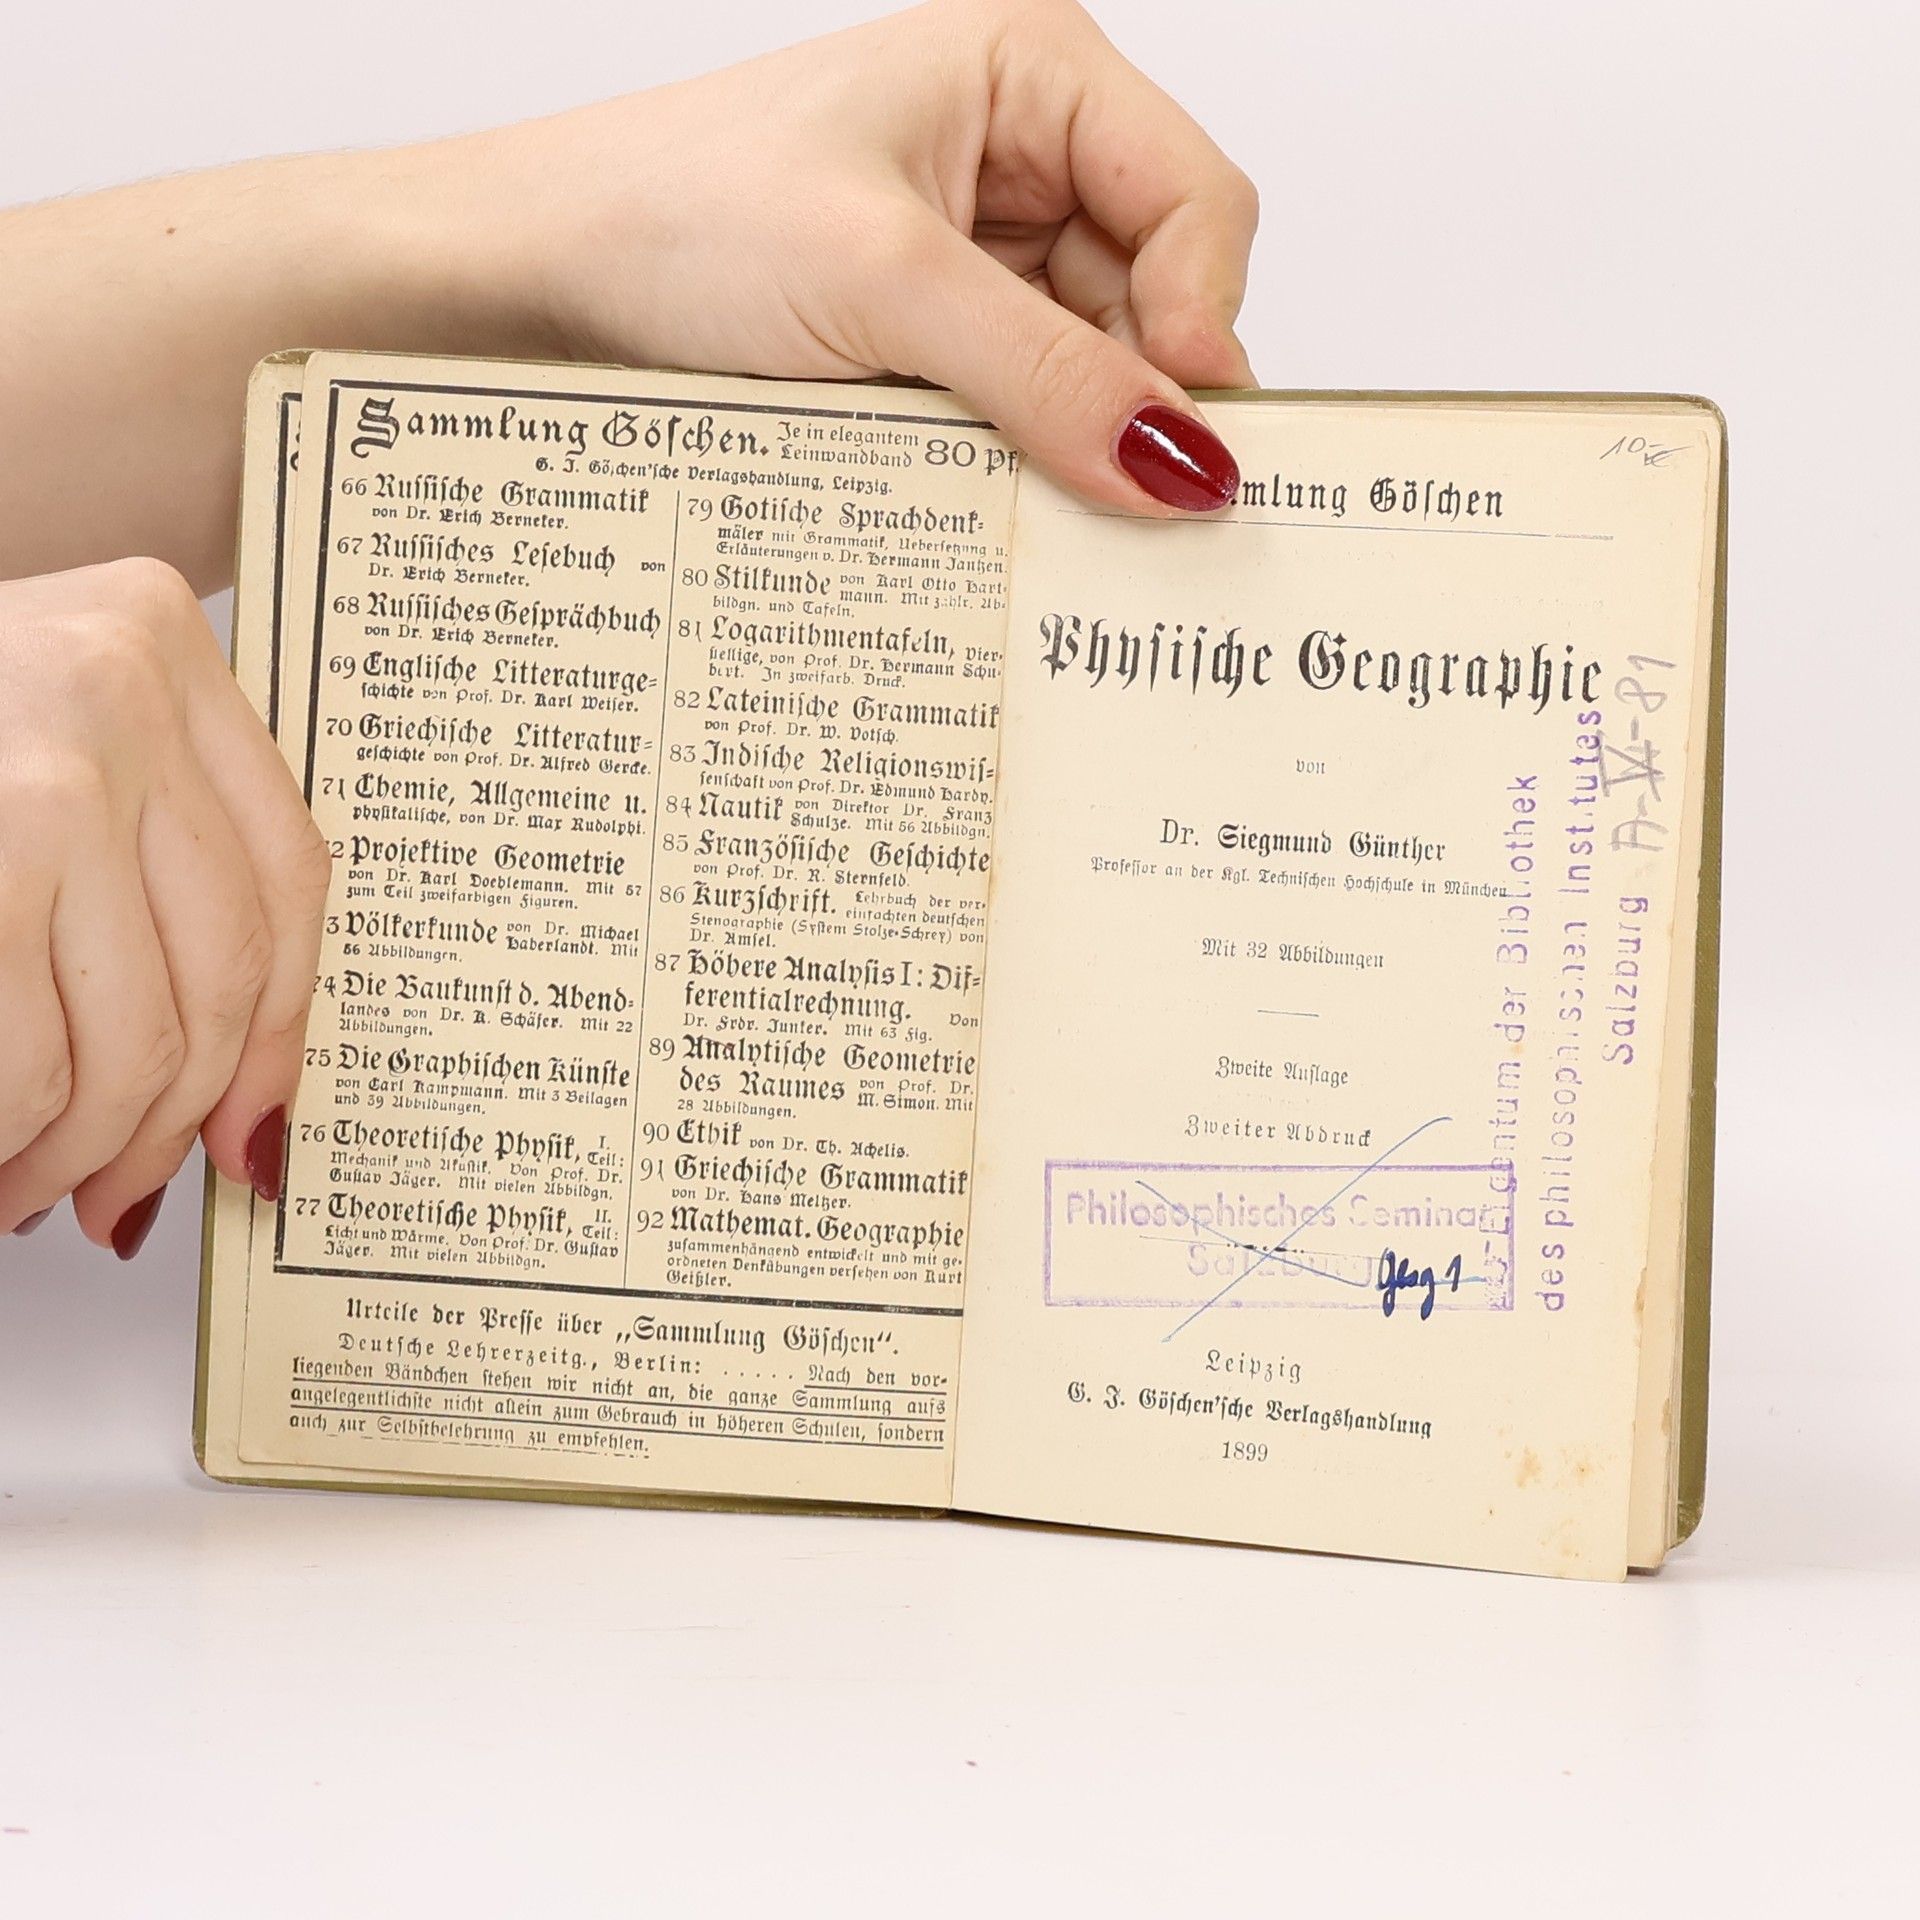 Sammlung Göschen. Je in elegantem
Leinwandband 80 Pf.
G. J. Göschen'sche Verlagshandlung, Leipzig.
66 Russische Grammatik
von Dr. Erich Berneker.
67 Russisches Lesebuch von
Dr. Erich Berneker.
68 Russisches Gesprächbuch
von Dr. Erich Berneker.
69 Englische Litteraturge-
schichte von Prof. Dr. Karl Weiser.
70 Griechische Litteratur-
geschichte von Prof. Dr. Alfred Gercke.
71 Chemie, Allgemeine u.
physikalische, von Dr. Max Rudolphi.
2 Projektive Geometrie
von Dr. Karl Doehlemann. Mit 57
zum Teil zweifarbigen Figuren.
3 Völkerkunde von Dr. Michael
Haberlandt. Mit
56 Abbildungen.
74 Die Baukunst d. Abend-
landes von Dr. K. Schäfer. Mit 22
Abbildungen.
75 Die Graphischen Künste
von Carl Kampmann. Mit 3 Beilagen
und 39 Abbildungen.
76 Theoretische Physik, I. Teil:
Mechanik und Akustik. Von Prof. Dr.
Gustav Jäger. Mit vielen Abbildgn.
77 Theoretische Physik, II. Teil:
Licht und Wärme. Von Prof. Dr. Gustav
Jäger. Mit vielen Abbildgn.
79 Gotische Sprachdenk-
mäler mit Grammatik, Uebersetzung u.
Erläuterungen v. Dr. Hermann Jantzen.
80 Stilkunde von Karl Otto Hart-
mann. Mit zahlr. Ab-
bildgn. und Tafeln.
81 Logarithmentafeln, vier-
stellige, von Prof. Dr. Hermann Schu-
bert. In zweifarb. Druck.
82 Lateinische Grammatik
von Prof. Dr. W. Votsch.
83 Indische Religionswis-
senschaft von Prof. Dr. Edmund Hardy.
84 Nautik von Direktor Dr. Franz
Schulze. Mit 56 Abbildgn.
85 Französische Geschichte
von Prof. Dr. R. Sternfeld.
86 Kurzschrift. Lehrbuch der ver-
einfachten deutschen
Stenographie (System Stolze-Schrey) von
Dr. Amsel.
87 Höhere Analysis I: Dif-
ferentialrechnung. Von
Dr. Frdr. Junker. Mit 63 Fig.
89 Analytische Geometrie
des Raumes von Prof. Dr.
M. Simon. Mit
28 Abbildungen.
90 Ethik von Dr. Th. Achelis.
91 Griechische Grammatik
von Dr. Hans Meltzer.
92 Mathemat. Geographie
zusammenhängend entwickelt und mit ge-
ordneten Denkübungen versehen von Kurt
Geißler.
Urteile der Presse über „Sammlung Göschen“.
Deutsche Lehrerzeitg., Berlin: . . . . . Nach den vor-
liegenden Bändchen stehen wir nicht an, die ganze Sammlung aufs
angelegentlichste nicht allein zum Gebrauch in höheren Schulen, sondern
auch zur Selbstbelehrung zu empfehlen.
mlung Göschen
Physische Geographie
von
Dr. Siegmund Günther
Professor an der Kgl. Technischen Hochschule in München
Mit 32 Abbildungen
Zweite Auflage
Zweiter Abdruck
Philosophisches Seminar
Salzburg
Geog 1
Leipzig
G. J. Göschen'sche Verlagshandlung
1899
Eigentum der Bibliothek
des philosophischen Institutes
Salzburg
A-VI-81